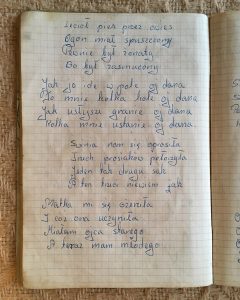 Leciał pies przez owies
Ogon miał spuszczony
Pewnie był żonaty
Bo był zasmucony

Jak ja ide w pole oj dana
To mnie kolka kole oj dana
Jak usłyszę granie oj dana
Kolka mnie ustanie oj dana

Świnia nam się oprosiła
Trzech prosiaków położyła
Jeden tak drugi siak
A ten trzeci niewiem jak

Matka mi się ożeniła
I coż ona uczyniła
Miałam ojca starego
A teraz mam młodego